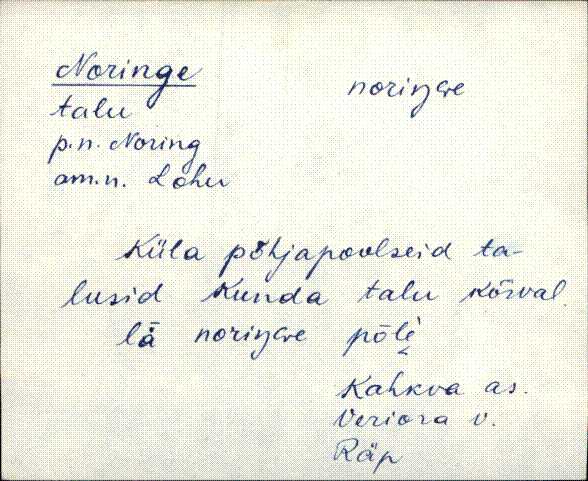 Noringe
noriŋɢe
talu
p.n. Noring
am.n. Lohu
Küla põhjapoolseid ta-
lusid Kunda talu kõrval.
lä noriŋɢe põlẹ̀
Kahkva as.
Veriora v.
Räp